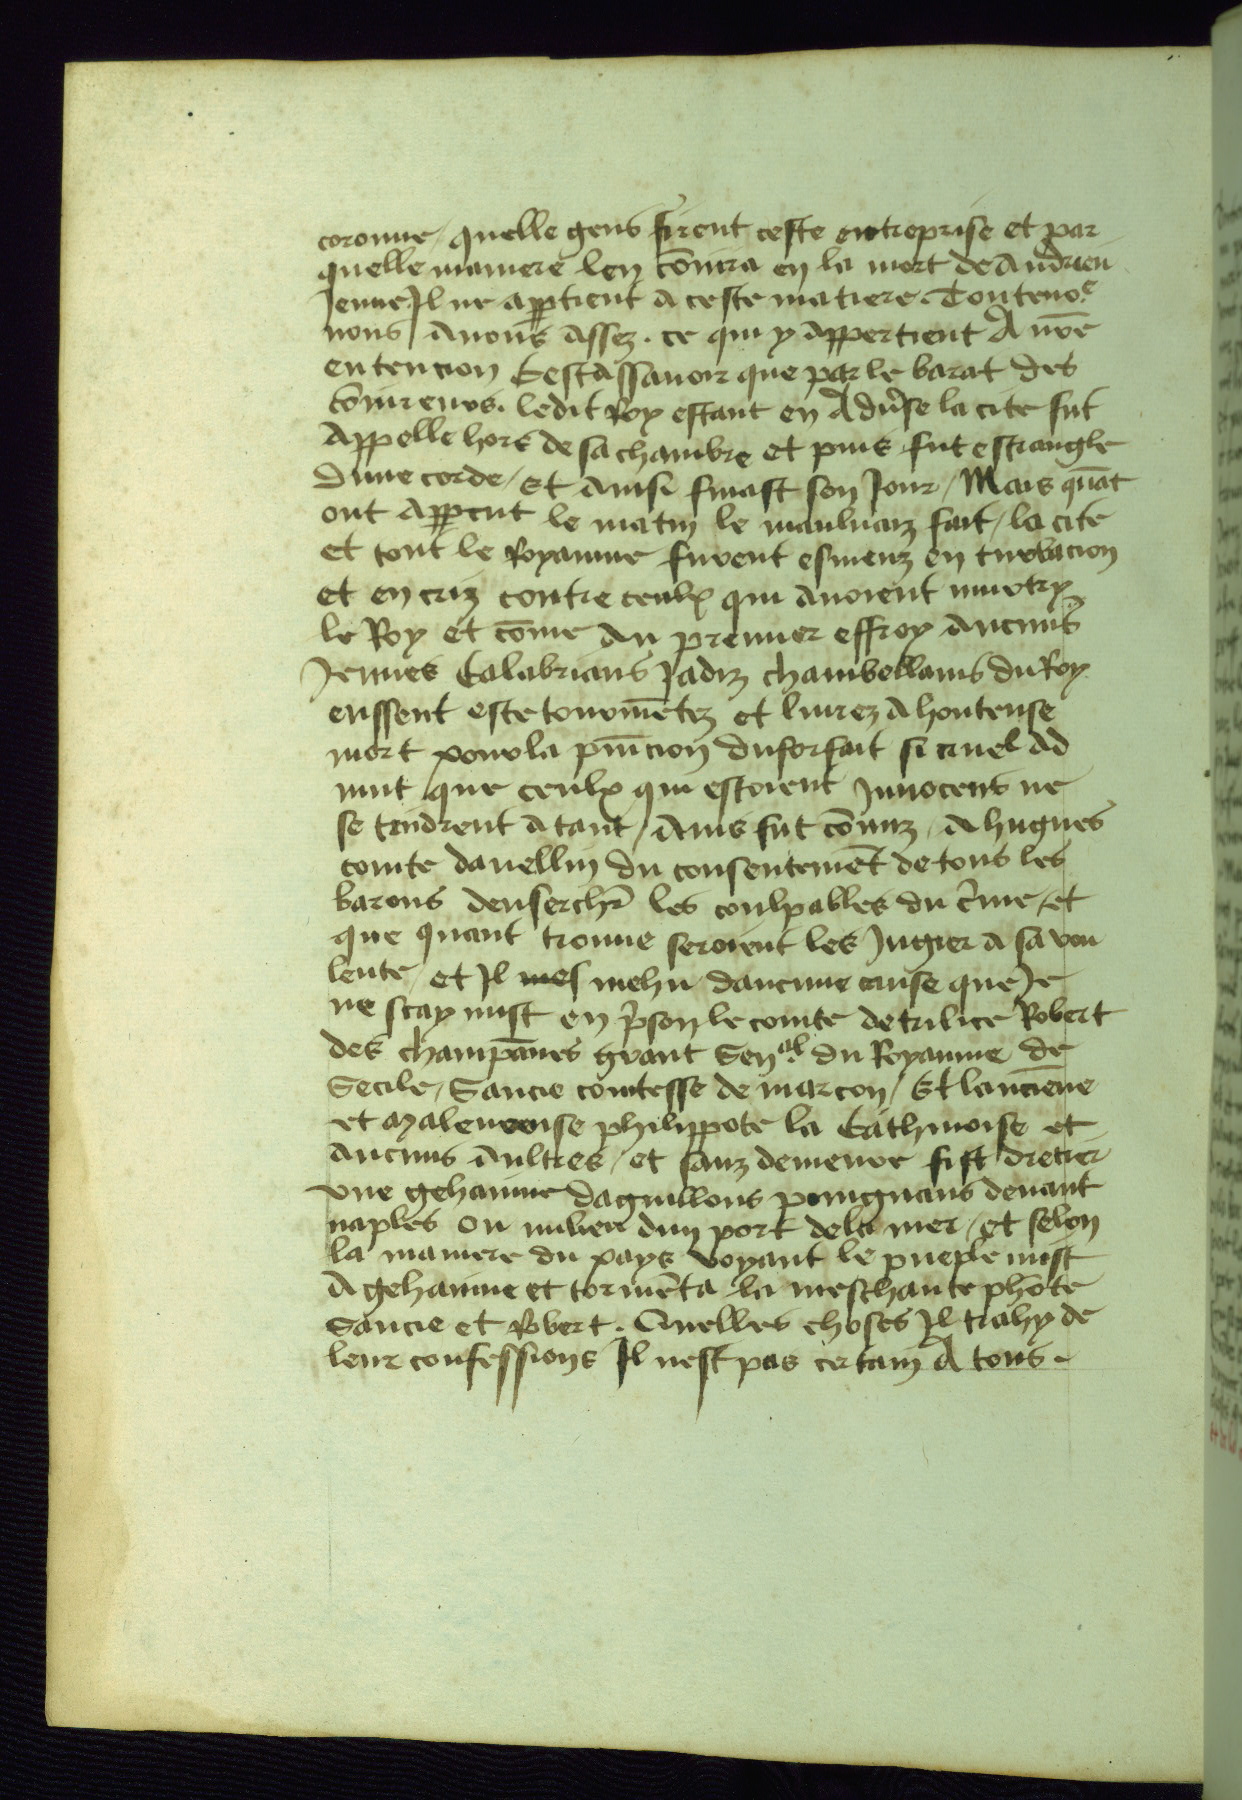 coronne / quelle gens firent ceste entreprise et par
quelle maniere len cōmira en la mort de Andrieu
Jenne Il ne apꝑtient a ceste matiere. Toutenoᵉ
nous / auons assez . ce qui y appertient A nr̄e
entencion Cest assauoir que par le barat des
cōmireurs. ledit Roy estant en Adūse la cite fut
Appelle hors de sa chambre et puis fut estrangle
dune corde / et ainsi finast son Jour / Mais quāt
ont Apparut le matin le mauluaiz fait / la cite
et tout le Royaume furent esmeuz en turbacion
et en criz contre ceulx qui auoient murtry
le Roy et cōme au premier effroy aucuns
Jennes Calabrians Jadiz chambellains du Roy
eussent este tourmētez et liurez a honteuse
mort pour la pūicion du forfait si cruel ad
uint que ceulx qui estoient Innocens ne
se tindrent a tant / Ains fut cōmiz / a hugues
comte dauellin du consentemēt de tous les
barons denserchr̄ les coulpables du c̄me / et
que quant trouue seroient les Jugier a sa vou
lente / et Il mes mehu daucune cause que Je
ne scay mist en p̄son le comte de trilice Robert
des champāes grant Senᵃˡ du Royaume de
Secile / Sancie comtesse de marcon / Et lanciēne
et maleureuse philippote la Cathinoise et
aucuns aultres / et sanz demeure fist drecier
vne gehainne daguillons poingnans deuant
naples ou milieu dun port de la mer / et selon
la maniere du pays voyant le pueple mist
A gehainne et tormēta la meschante ph̄ote
Sancie et Robert . Quelles choses Il trahy de
leur confessions Il nest pas certain A tous .